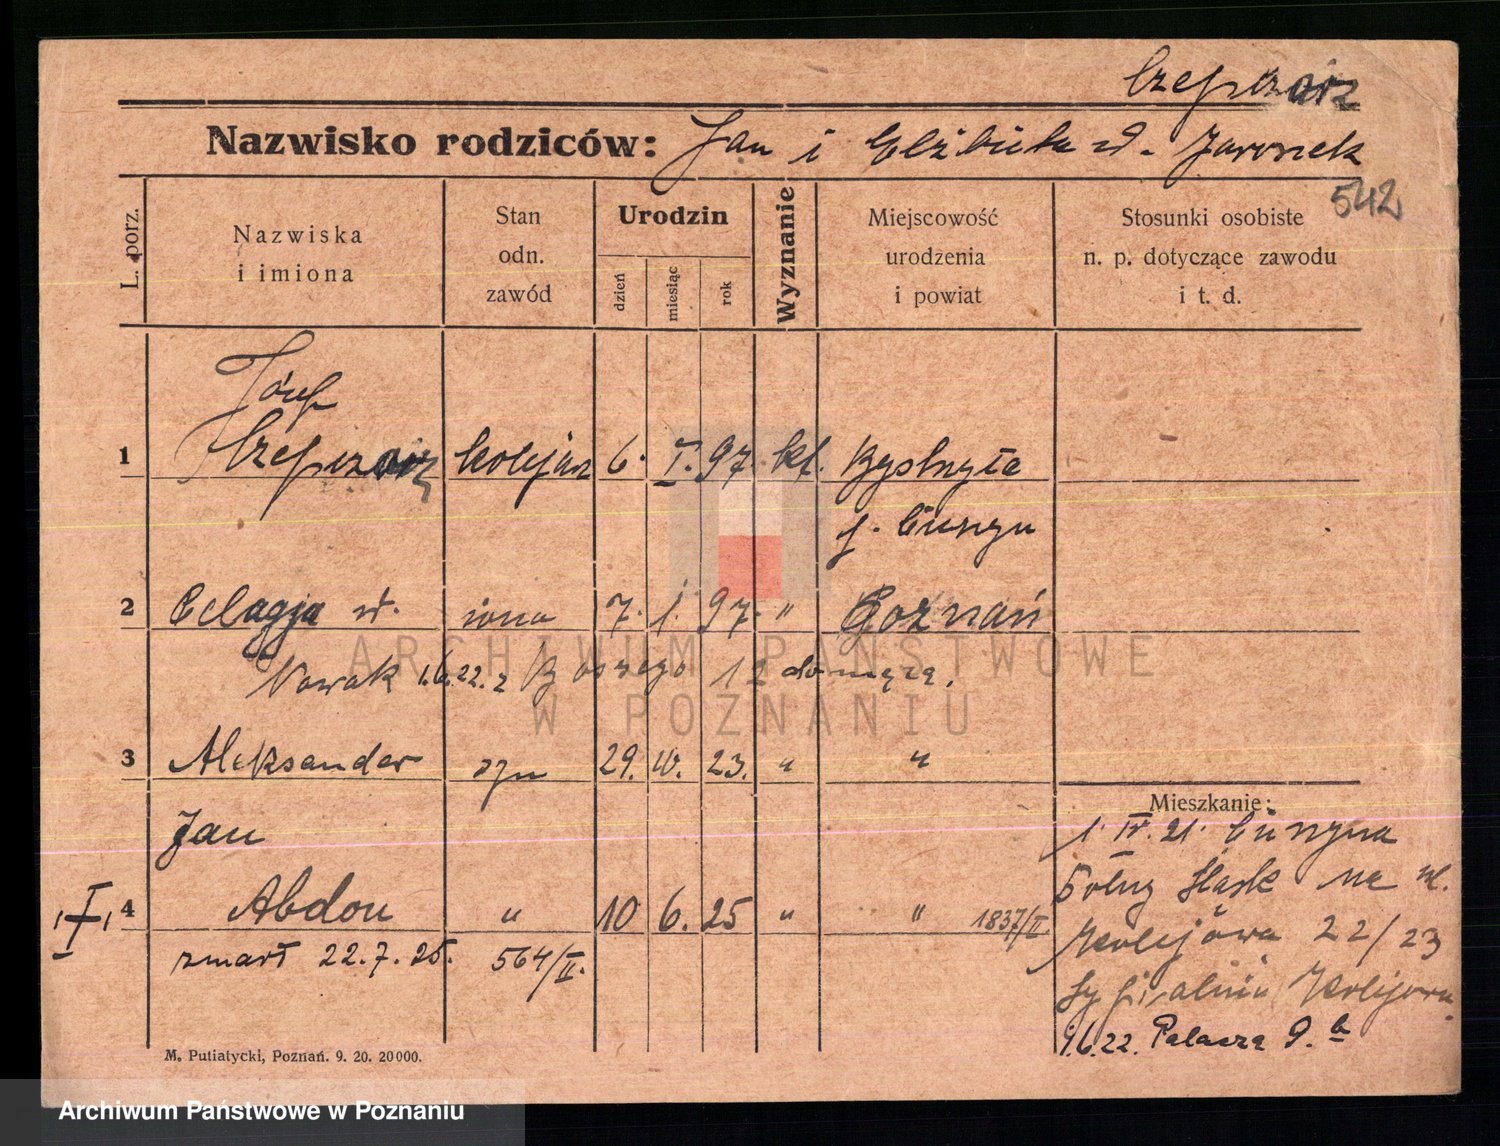 Czepczorz
Nazwisko rodziców: Jan i Elżbieta z d. Jaronek
542
L. porz.
Nazwiska i imiona
Stan odn. zawód
Urodzin
dzień
miesiąc
rok
Wyznanie
Miejscowość urodzenia i powiat
Stosunki osobiste n. p. dotyczące zawodu i t. d.
Józef
1 Czepczorz kolejarz 6. I. 97. kt.
p. Cieszyn
2 Pelagja żona 7. 1. 97. " Poznań
Nowak 1.6.22. z 12 do męża.
3 Aleksander syn 29. 23. " "
Jan
4 Abdon " 10 6. 25 " " 1837/II
zmarł 22.7.25. 564/II.
Mieszkanie:
1. IV. 21. Cieszyna
Śląsk na ul.
Kolejowa 22/23
Kolejowa
9.6.22. Palacza 9. a
M. Putiatycki, Poznań. 9. 20. 20000.
ARCHIWUM PAŃSTWOWE
W POZNANIU
Archiwum Państwowe w Poznaniu